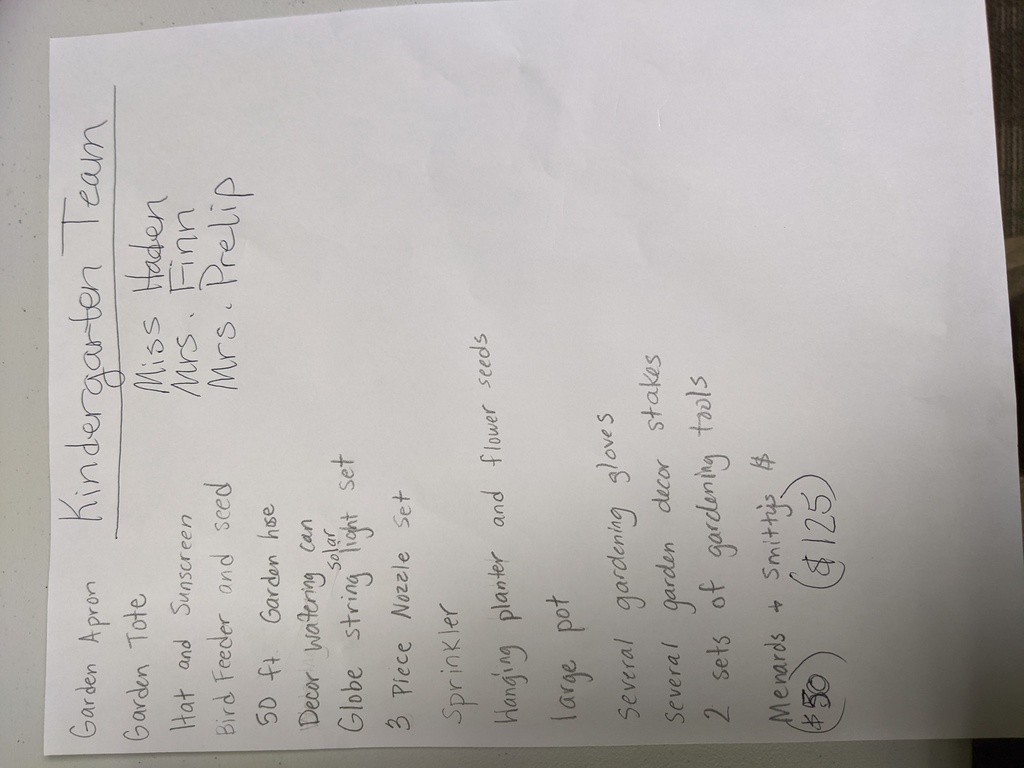 Kindergarten Team
Miss Haden
Mrs. Finn
Mrs. Prelip
Garden Apron
Garden Tote
Hat and Sunscreen
Bird Feeder and seed
50 ft. Garden hose
Decor watering can
Globe string solar light set
3 Piece Nozzle Set
Sprinkler
Hanging planter and flower seeds
large pot
Several gardening gloves
Several garden decor stakes
2 sets of gardening tools
Menards + Smittys $
($50) ($125)